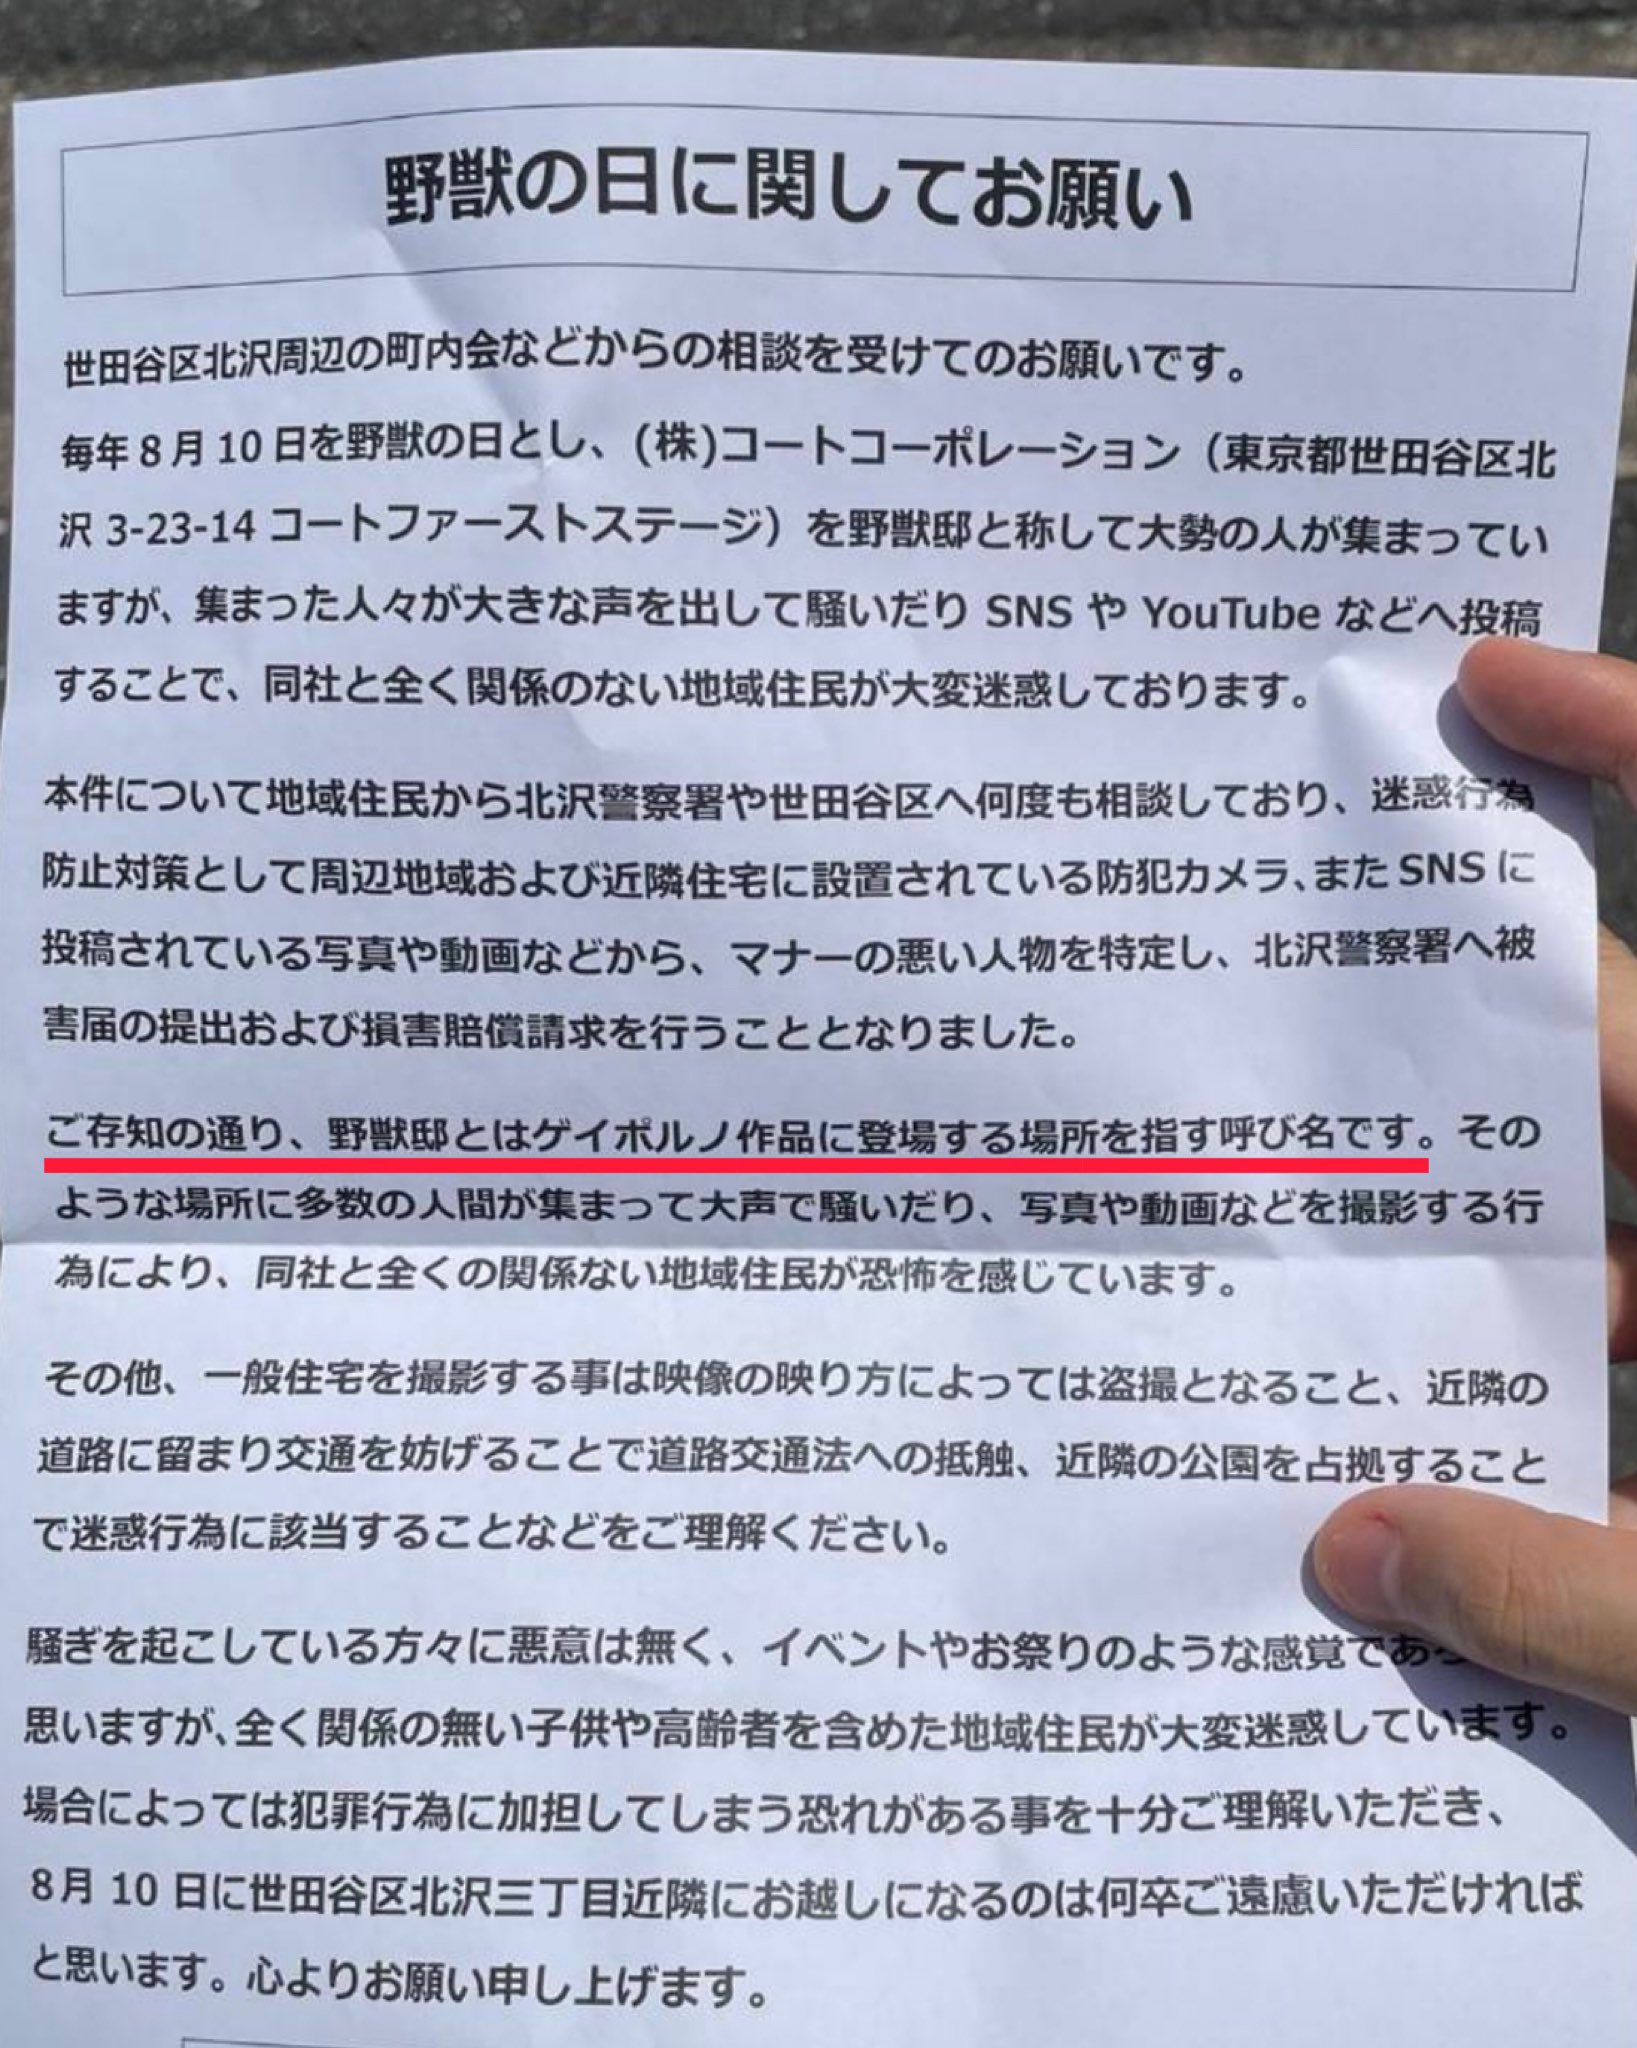 野獣の日に関してお願い
世田谷区北沢周辺の町内会などからの相談を受けてのお願いです。
毎年8月10日を野獣の日とし、(株)コートコーポレーション（東京都世田谷区北
沢3-23-14コートファーストステージ）を野獣邸と称して大勢の人が集まってい
ますが、集まった人々が大きな声を出して騒いだりSNSやYouTubeなどへ投稿
することで、同社と全く関係のない地域住民が大変迷惑しております。
本件について地域住民から北沢警察署や世田谷区へ何度も相談しており、迷惑行為
防止対策として周辺地域および近隣住宅に設置されている防犯カメラ、またSNSに
投稿されている写真や動画などから、マナーの悪い人物を特定し、北沢警察署へ被
害届の提出および損害賠償請求を行うこととなりました。
ご存知の通り、野獣邸とはゲイポルノ作品に登場する場所を指す呼び名です。その
ような場所に多数の人間が集まって大声で騒いだり、写真や動画などを撮影する行
為により、同社と全くの関係ない地域住民が恐怖を感じています。
その他、一般住宅を撮影する事は映像の映り方によっては盗撮となること、近隣の
道路に留まり交通を妨げることで道路交通法への抵触、近隣の公園を占拠すること
で迷惑行為に該当することなどをご理解ください。
騒ぎを起こしている方々に悪意は無く、イベントやお祭りのような感覚であっ
思いますが、全く関係の無い子供や高齢者を含めた地域住民が大変迷惑しています。
場合によっては犯罪行為に加担してしまう恐れがある事を十分ご理解いただき、
8月10日に世田谷区北沢三丁目近隣にお越しになるのは何卒ご遠慮いただければ
と思います。心よりお願い申し上げます。